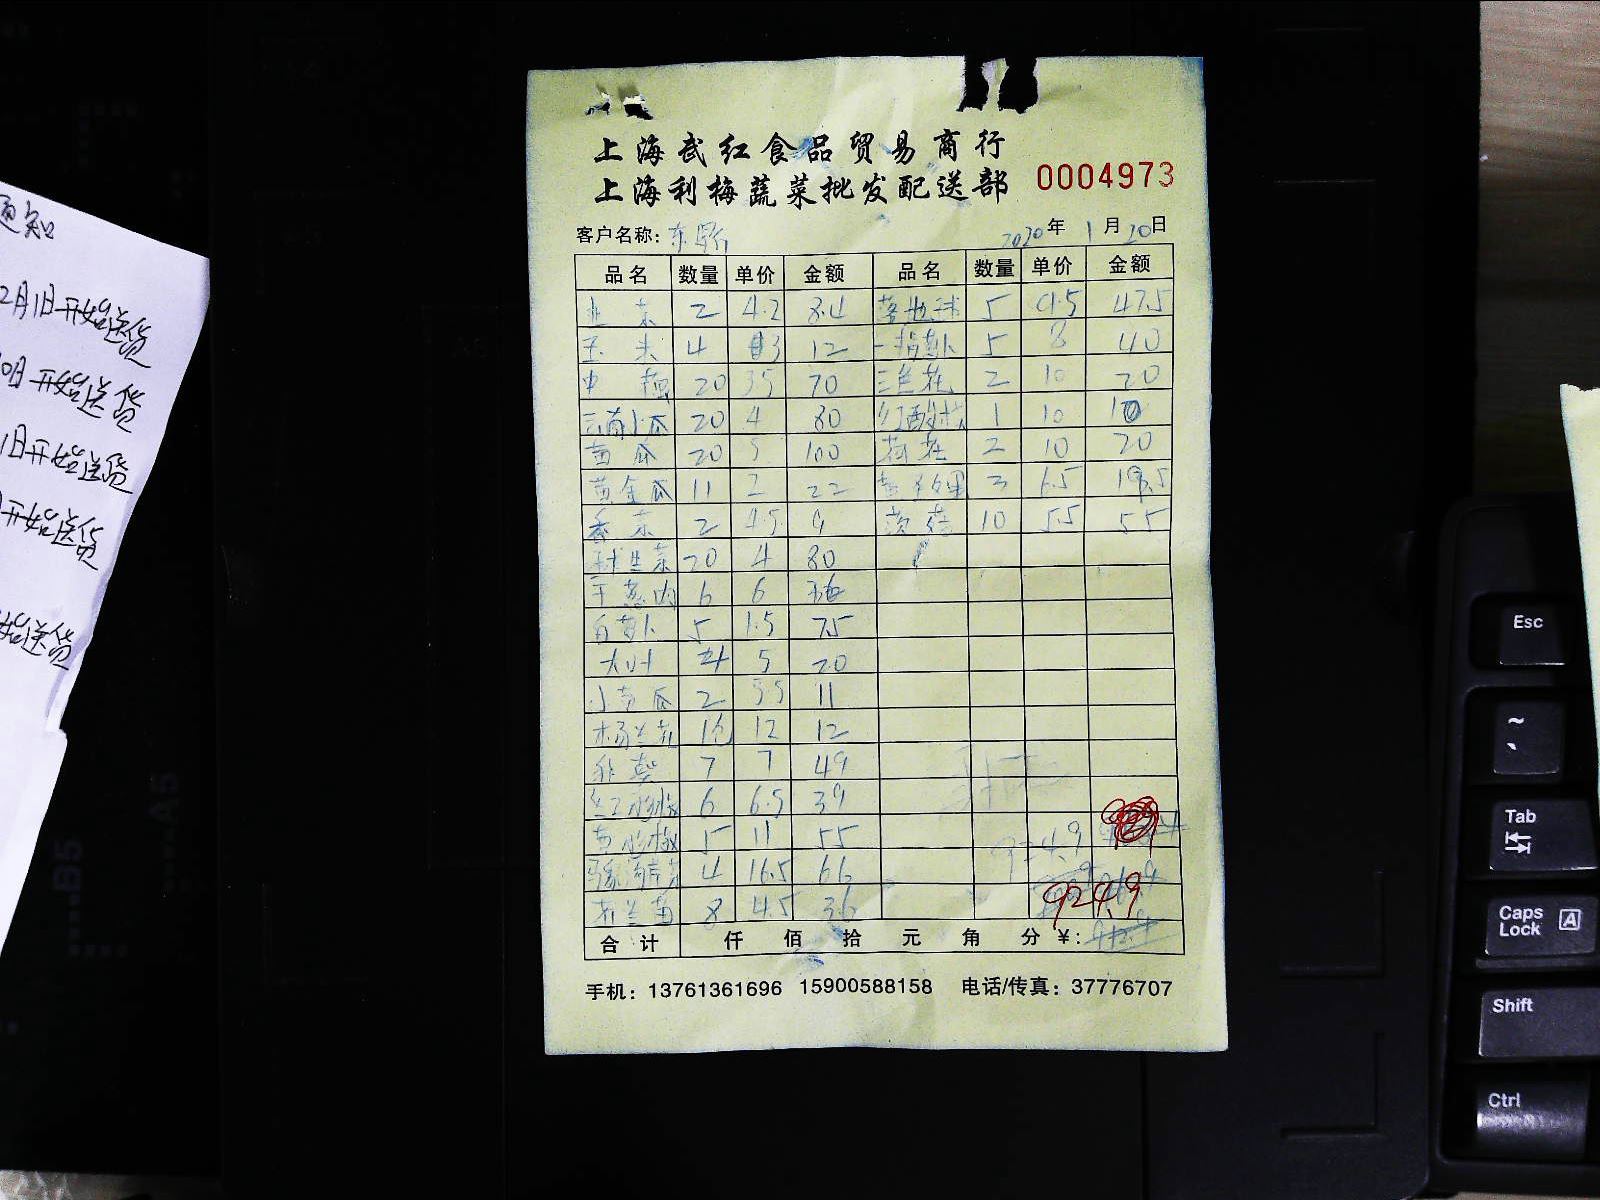 通知
2月1日开始送货
开始送货
1日开始送货
开始送货
始送货
上海武红食品贸易商行
上海利梅蔬菜批发配送部
0004973
客户名称:
2020年 1月20日
品名 数量 单价 金额 品名 数量 单价 金额
2 4.2 8.4 落地球 5 9.5 47.5
玉米 4 3 12 5 8 40
中 20 3.5 70 三兰花 2 10 20
云南小瓜 20 4 80 1 10 10
黄瓜 20 5 100 2 10 20
黄金瓜 11 2 22 3 6.5 19.5
香菜 2 4.5 9 茨菇 10 5.5 55
球生菜 20 4 80
干葱肉 6 6 36
白萝卜 5 1.5 7.5
大叶 4 5 20
小黄瓜 2 5.5 11
杨兰花 12 12
秋葵 7 7 49
红彩椒 6 6.5 39
黄彩椒 5 11 55
4 16.5 66
荷兰黄 8 4.5 36
924.9
924.9
合计 仟 佰 拾 元 角 分 ¥:
手机: 13761361696 15900588158 电话/传真: 37776707
B5
A5
Esc
~
`
Tab
Caps Lock A
Shift
Ctrl